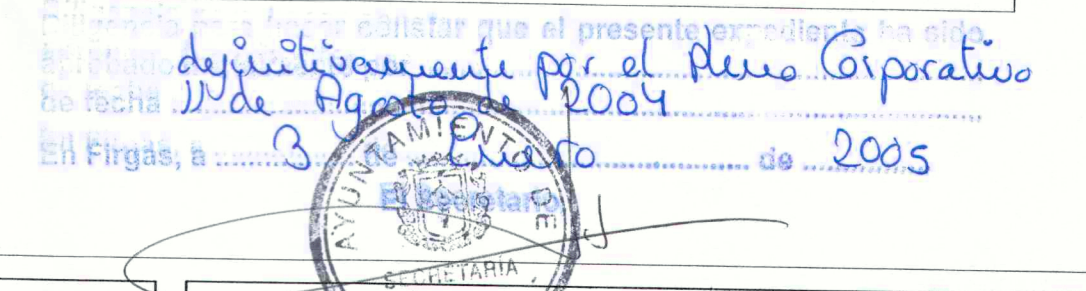 Diligencia para hacer constar que el presente expediente ha sido
aprobado definitivamente por el Pleno Corporativo
de fecha 11 de Agosto de 2004
En Firgas, a 3 de Enero de 2005
El Secretario
AYUNTAMIENTO DE
SECRETARÍA